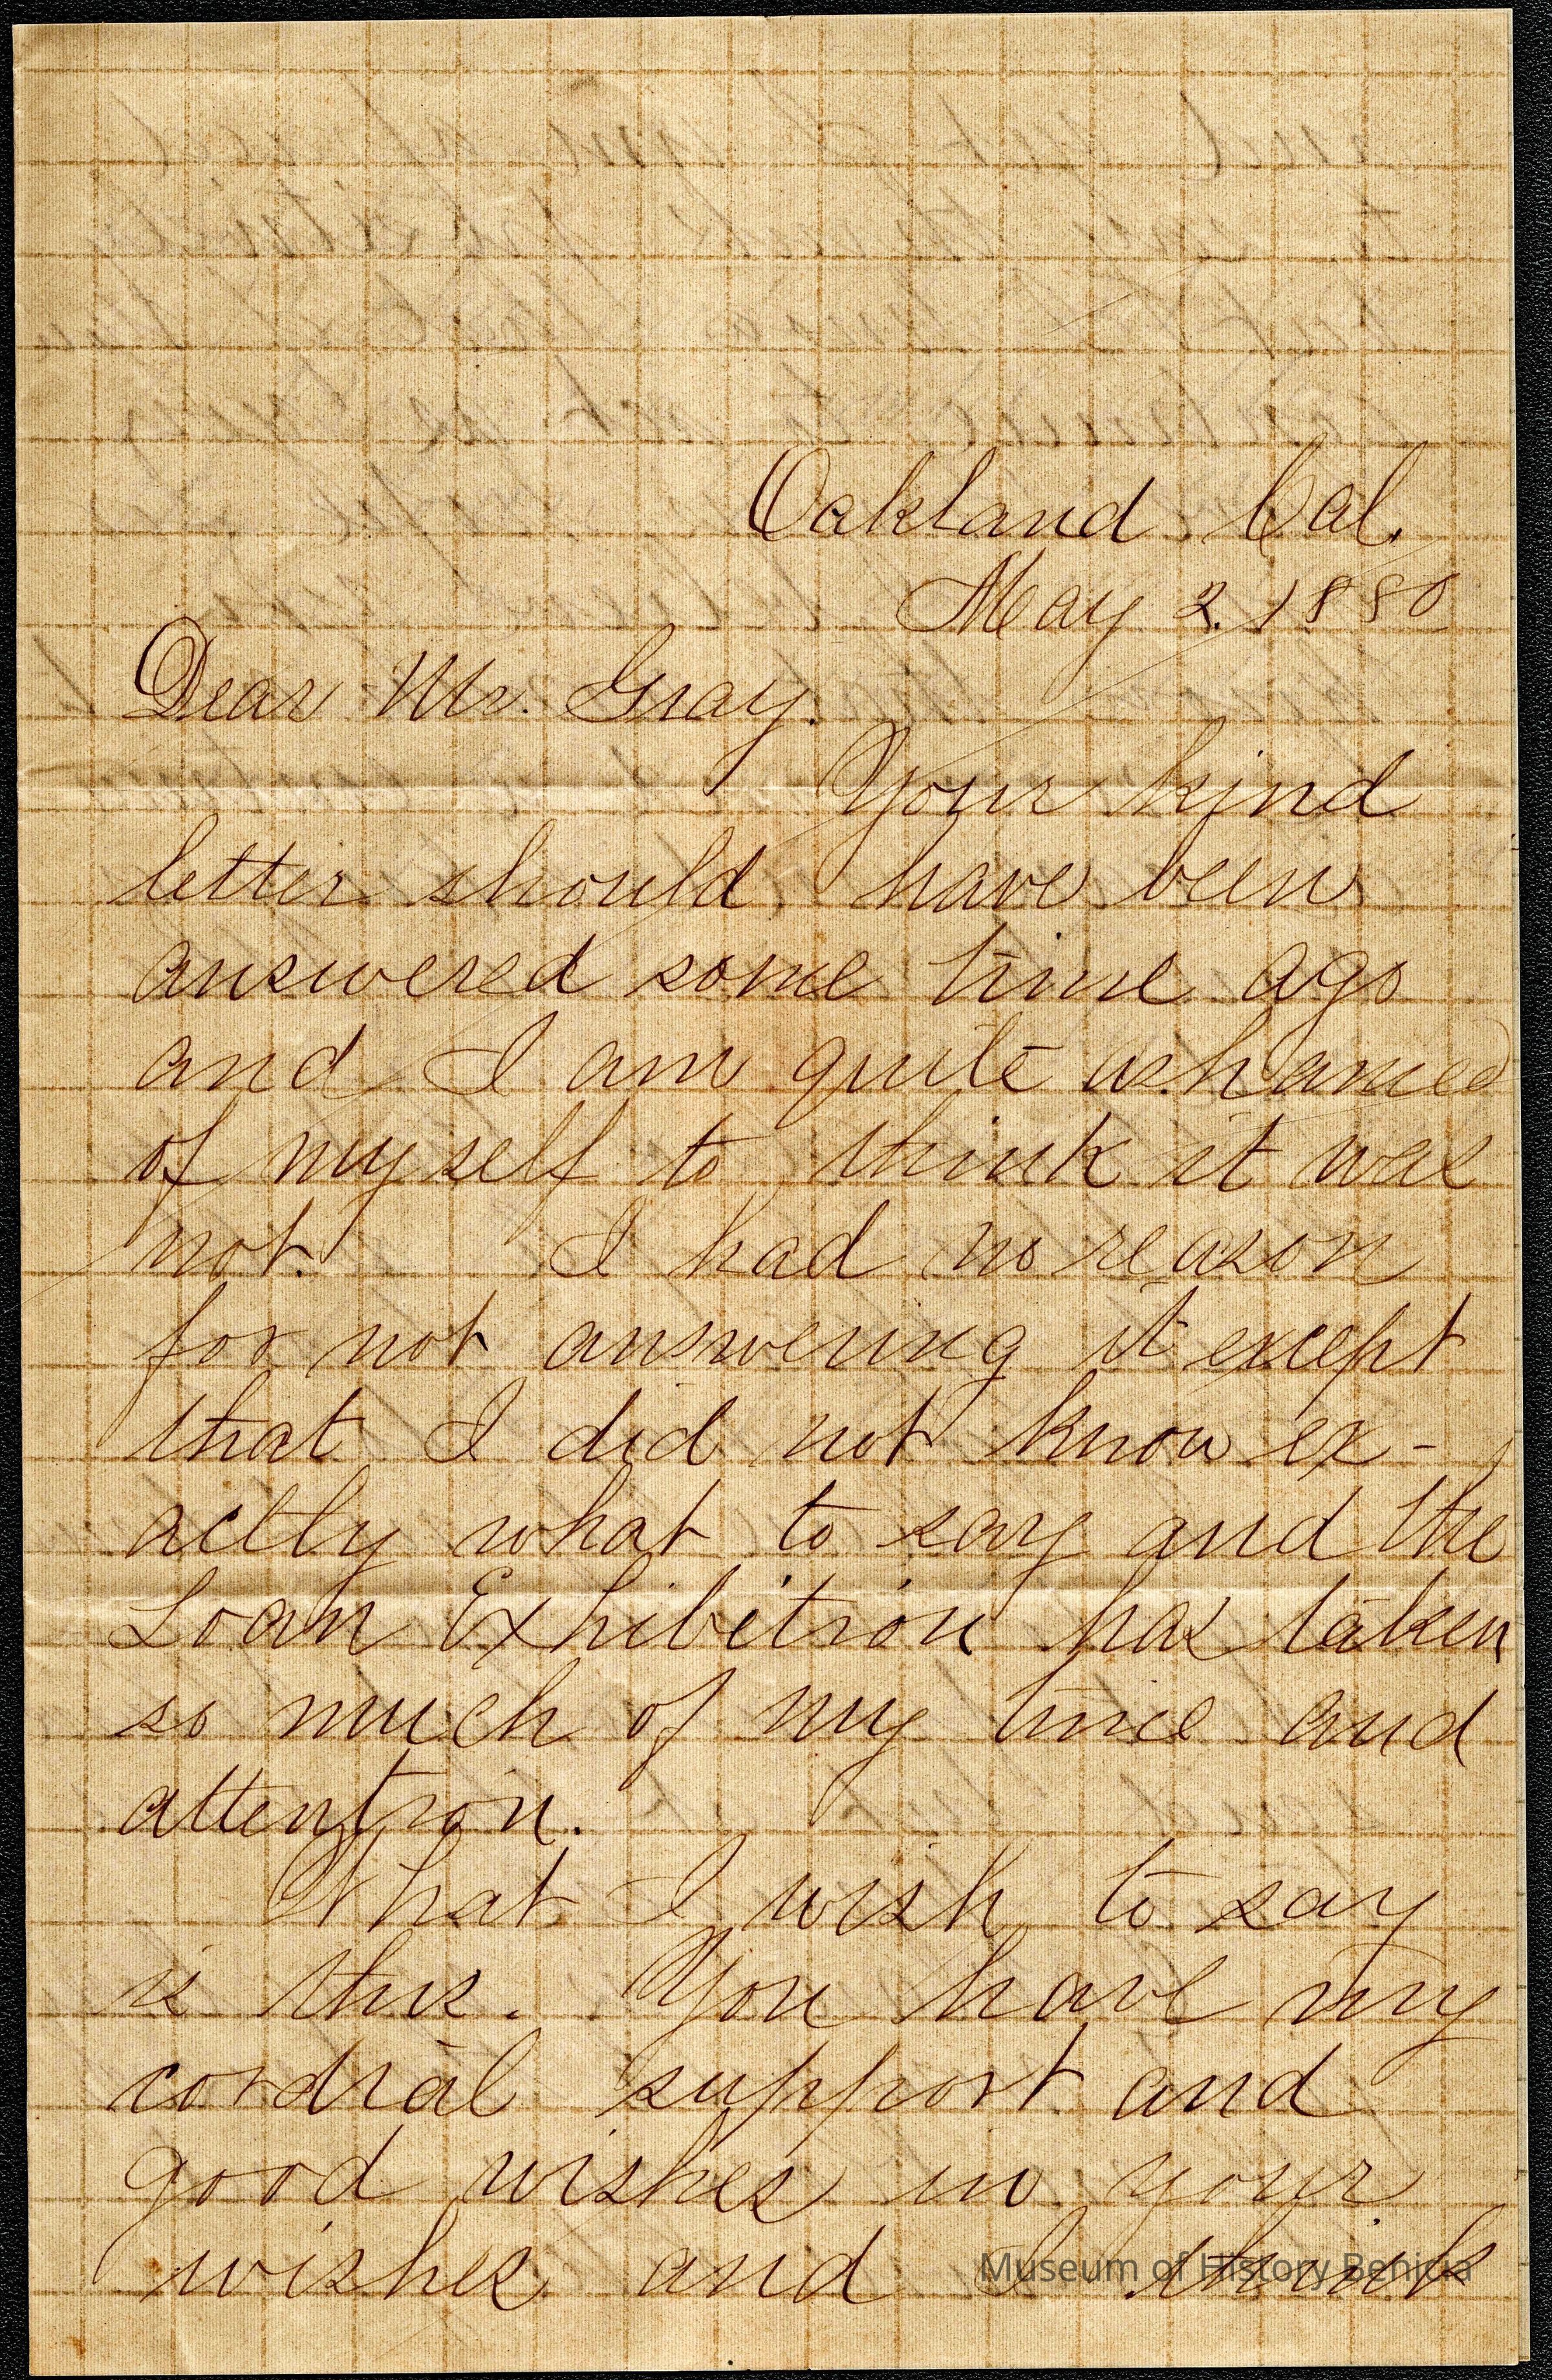 Oakland Cal.
May 2. 1880
Dear Mr. Gray.
Your kind
letter should have been
answered some time ago
and I am quite ashamed
of myself to think it was
not. I had no reason
for not answering it except
that I did not know ex-
actly what to say and the
Loan Exhibition has taken
so much of my time and
attention.
What I wish to say
is this. You have my
cordial support and
good wishes in your
wishes and I think
Museum of History Benicia